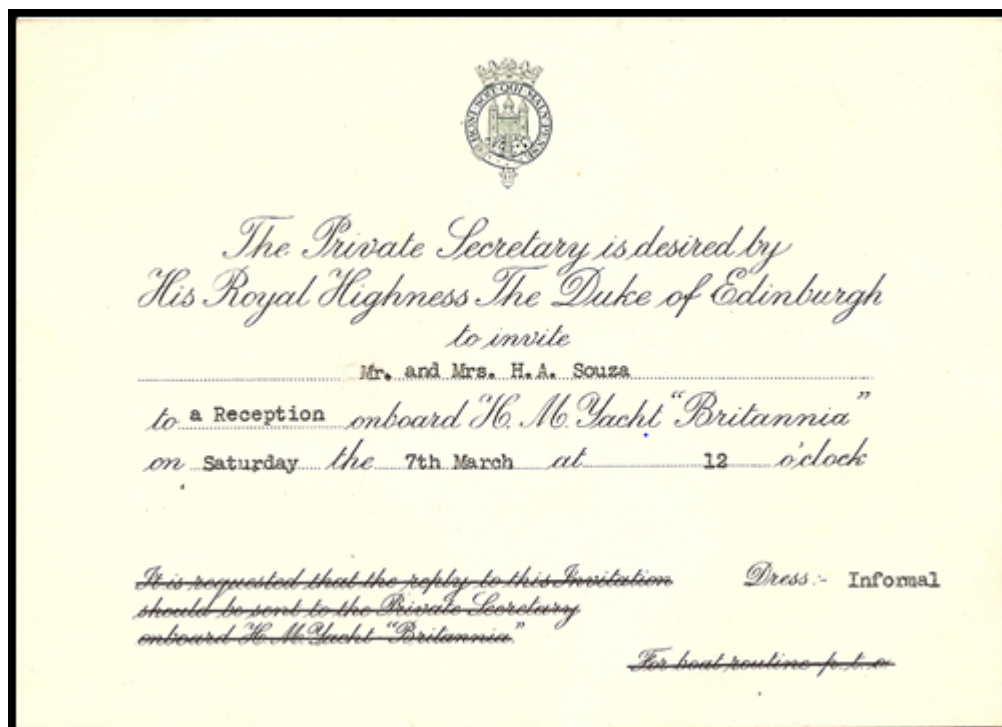 HONI SOIT QUI MAL Y PENSE
The Private Secretary is desired by
His Royal Highness The Duke of Edinburgh
to invite
Mr. and Mrs. H.A. Souza
to a Reception onboard H. M. Yacht "Britannia"
on Saturday the 7th March at 12 o'clock
It is requested that the reply to this Invitation
should be sent to the Private Secretary
onboard H. M. Yacht "Britannia."
Dress:- Informal
For boat routine p. t. o